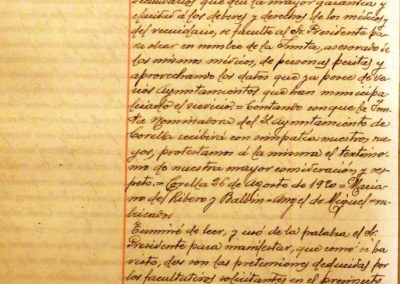 que den la mayor garantía y
claridad á los deberes y derechos de los médicos
del vecindario, se faculte al Sr. Presidente pa
ra obrar en nombre de la Junta, asesorado de
los mismos médicos, de personas peritas y
aprovechando los datos que ya posee de va-
rios Ayuntamientos que han municipa-
lizado el servicio = Contando con que la Jun
ta Nominadora del Ayuntamiento de
Corella recibirá con simpatía nuestros rue
gos, protestamos á la misma el testimo
nio de nuestra mayor consideración y res
peto. = Corella 26 de Agosto de 1920 = Maria
no del Ribero y Baldin = Angel de Miguel =
bricados
Terminó de leer, y usó de la palabra el Sr.
Presidente para manifestar, que como se ha
visto, dos son las pretensiones deducidas por
los facultativos solicitantes en el